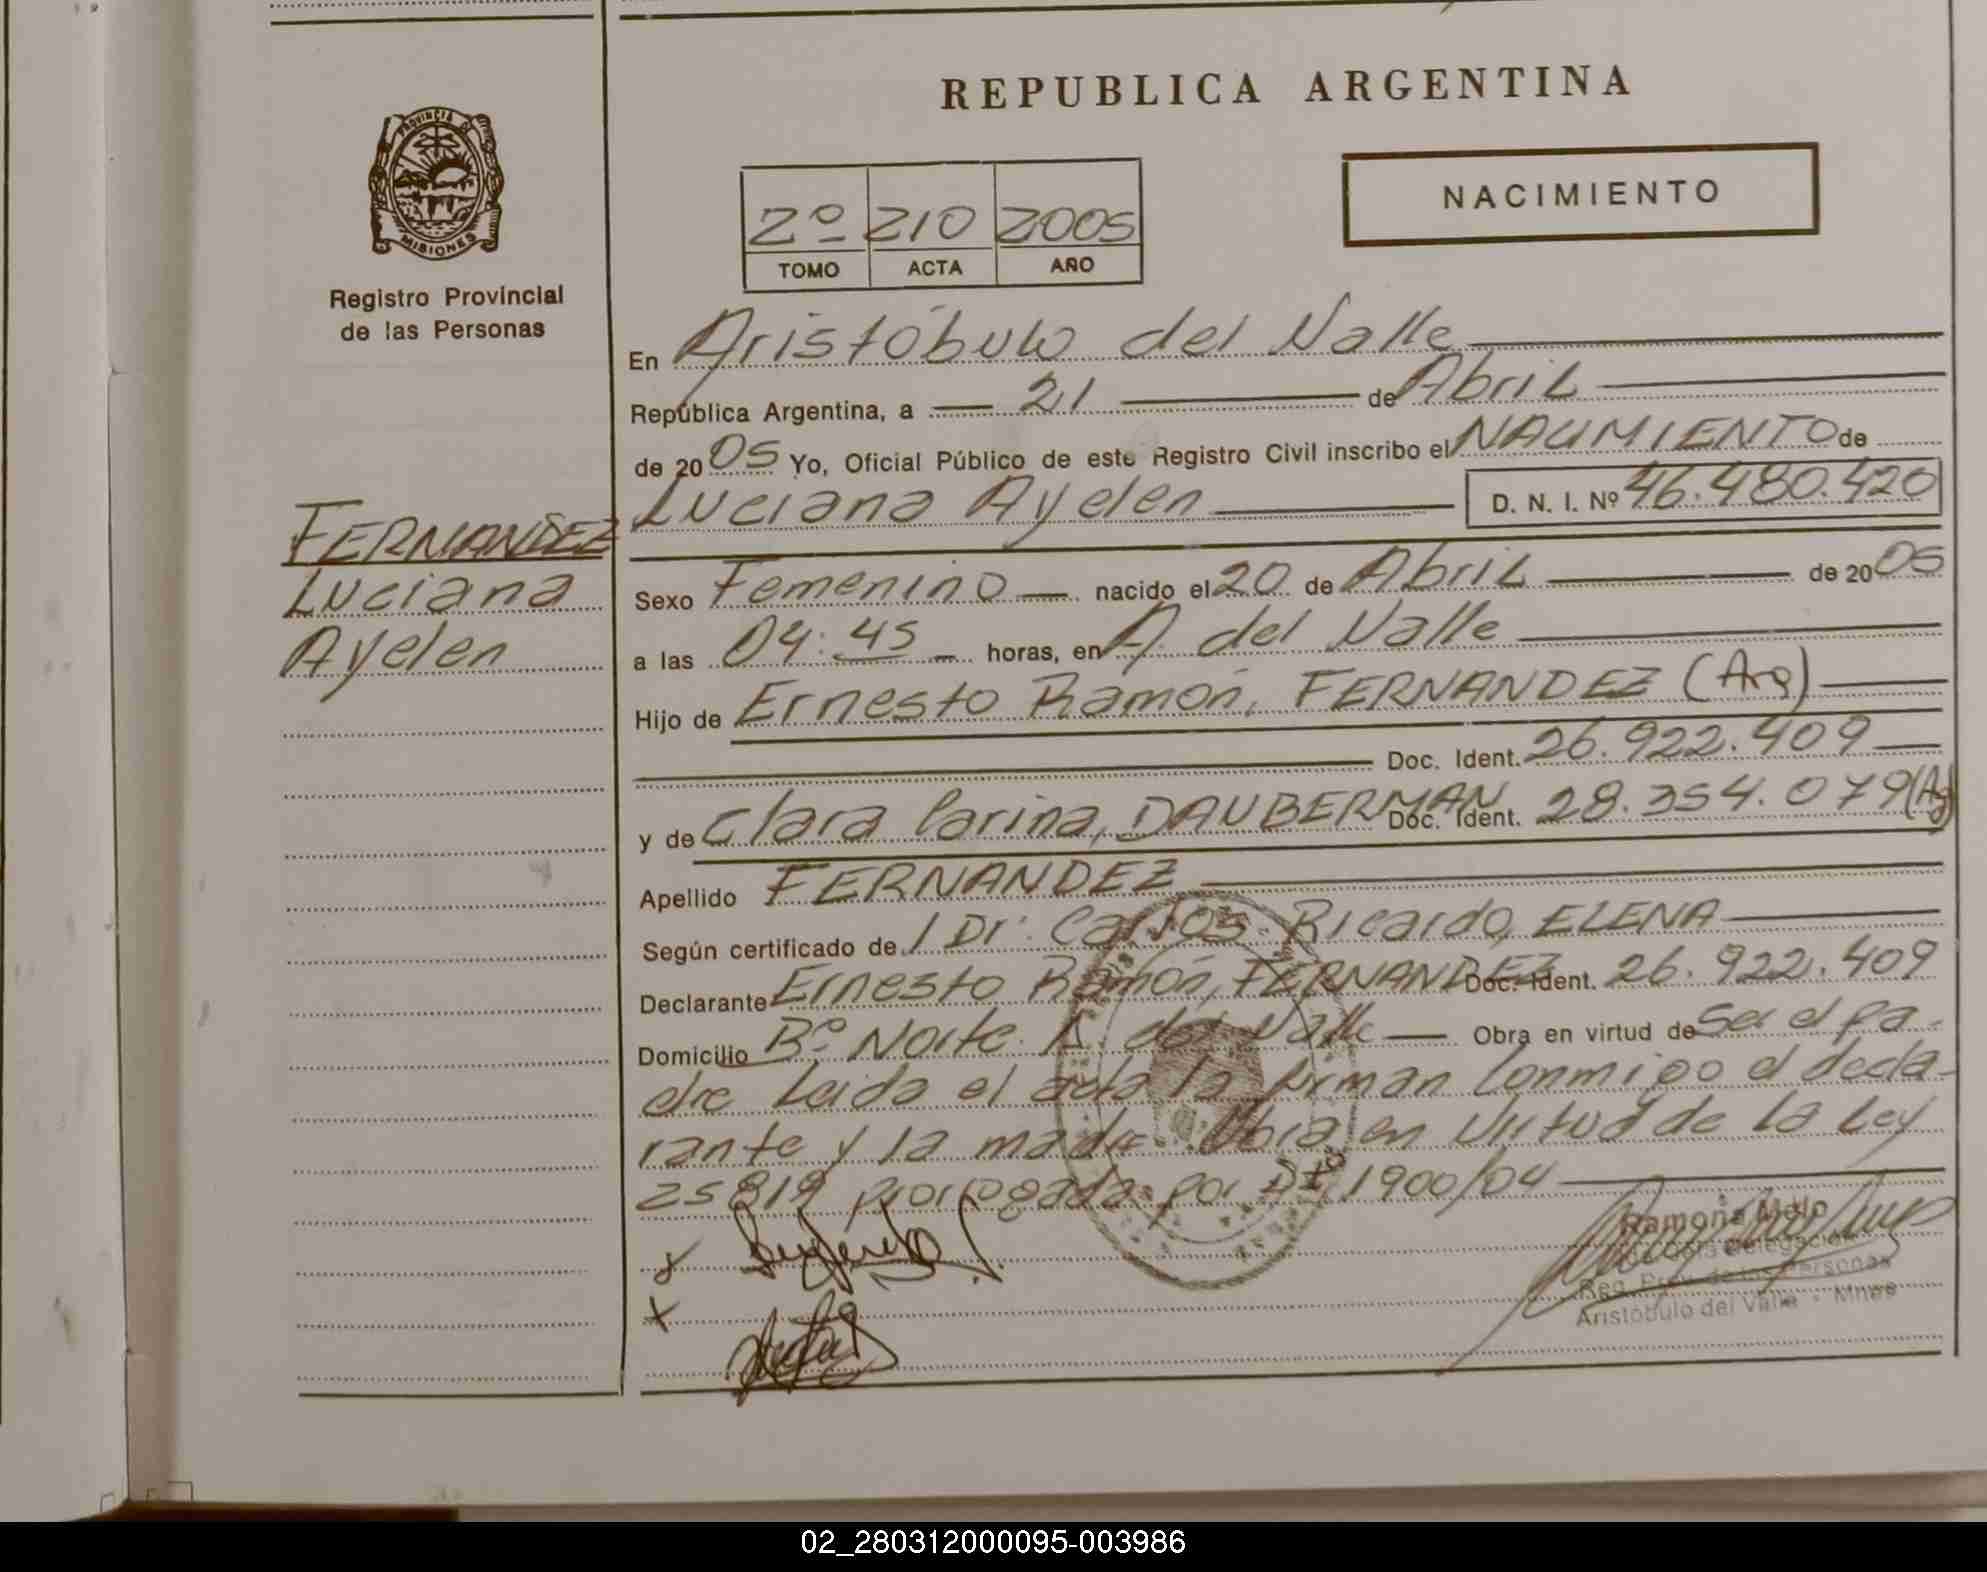 REPUBLICA ARGENTINA
PROVINCIA DE
MISIONES
Registro Provincial
de las Personas
2º 210 2005
TOMO ACTA AÑO
NACIMIENTO
FERNANDEZ
Luciana
Ayelen
En Aristóbulo del Valle
República Argentina, a 21 de Abril
de 2005 Yo, Oficial Público de este Registro Civil inscribo el NACIMIENTO de
Luciana Ayelen D. N. I. Nº 46.480.420
Sexo Femenino nacido el 20 de Abril de 2005
a las 04:45 horas, en A. del Valle
Hijo de Ernesto Ramón, FERNANDEZ (Arg)
Doc. Ident. 26.922.409
y de Clara Carina, DAUBERMAN Doc. Ident. 28.354.079 (Ag)
Apellido FERNANDEZ
Según certificado de / Dr. Carlos Ricardo, ELENA
Declarante Ernesto Ramón, FERNANDEZ Doc. Ident. 26.922.409
Domicilio Bº Norte A. del Valle Obra en virtud de Ser el pa-
dre Leida el acta la firman Conmigo el decla-
rante y la madre. Obra en Virtud de La Ley
25819 prorrogada por Dto 1900/04
x
x
Ramona Melo
Delegación
Reg. Prov. de las Personas
Aristóbulo del Valle - Mnes
02_280312000095-003986